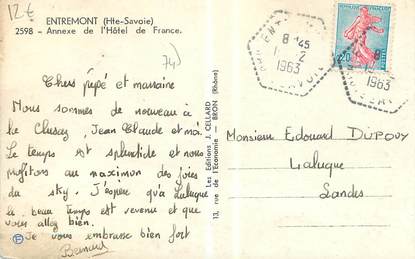 12€
ENTREMONT (Hte-Savoie)
2598 - Annexe de l'Hôtel de France.
74)
8 H 45
2
1963
0,20
1963
Chers pépé et marraine
Nous sommes de nouveau à
la Clusaz, Jean Claude et moi.
Le temps est splendide et nous
profitons au maximum des joies
du sky. J'espère qu'à Laluque
le beau temps est revenu et que
vous allez bien.
Je vous embrasse bien fort
Bernard
Les Editions J. CELLARD
13, rue de l'Economie - BRON (Rhône)
Monsieur Edouard DUPOUY
Laluque
Landes